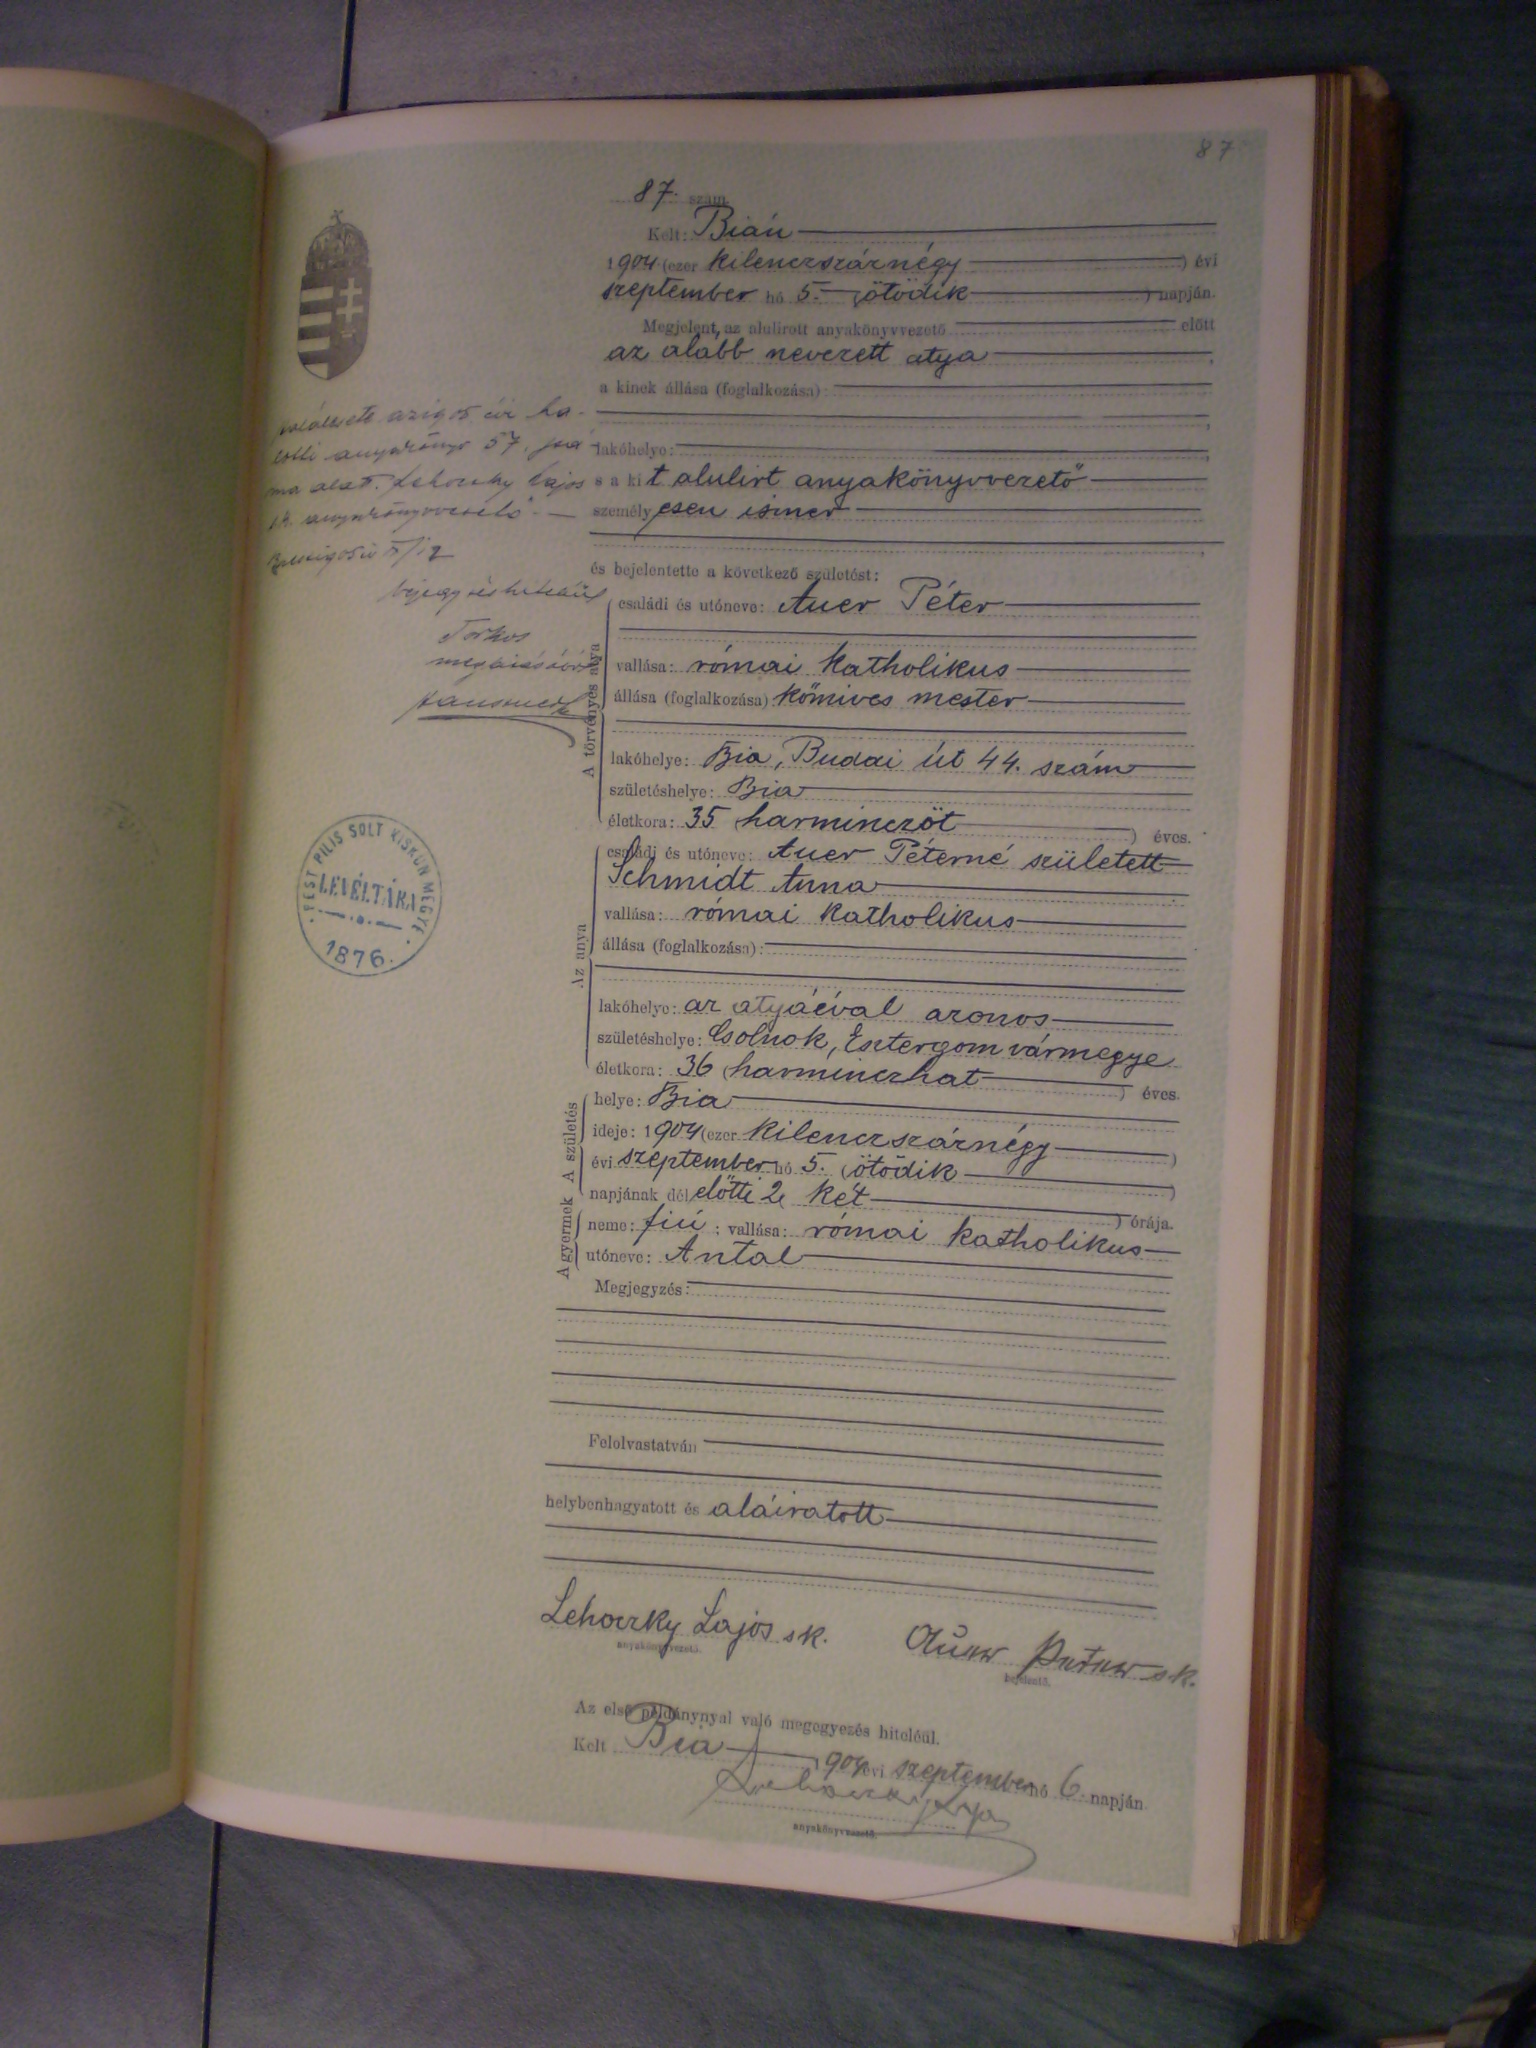 87
87. szám.
Kelt: Bián
1904 (ezer kilenczszáznégy) évi
szeptember hó 5. (ötödik) napján.
Megjelent, az alulirott anyakönyvvezető előtt
az alább nevezett atya,
a kinek állása (foglalkozása):
lakóhelye:
s a kit alulirt anyakönyvvezető
személyesen ismer
és bejelentette a következő születést:
A törvényes atya
családi és utóneve: Auer Péter
vallása: római katholikus
állása (foglalkozása): kőmives mester
lakóhelye: Bia, Budai út 44. szám
születéshelye: Bia
életkora: 35 (harminczöt) éves.
Az anya
családi és utóneve: Auer Péterné született
Schmidt Anna
vallása: római katholikus
állása (foglalkozása):
lakóhelye: az atyáéval azonos
születéshelye: Csolnok, Esztergom vármegye
életkora: 36 (harminczhat) éves.
A születés
helye: Bia
ideje: 1904 (ezer kilenczszáznégy)
évi szeptember hó 5. (ötödik)
napjának délelőtti 2 (két) órája.
A gyermek
neme: fiú; vallása: római katholikus
utóneve: Antal
Megjegyzés:
Felolvastatván
helybenhagyatott és aláiratott
Lehoczky Lajos sk.
anyakönyvvezető.
Auer Peter sk.
bejelentő.
Az első példánynyal való megegyezés hiteléül.
Kelt Bia 1904 évi szeptember hó 6. napján
Lehoczky Lajos
anyakönyvvezető.
anyakönyv 57.
alatt. Lehoczky Lajos
sk. anyakönyvvezető
PEST PILIS SOLT KISKUN MEGYE
LEVÉLTÁRA
1876.